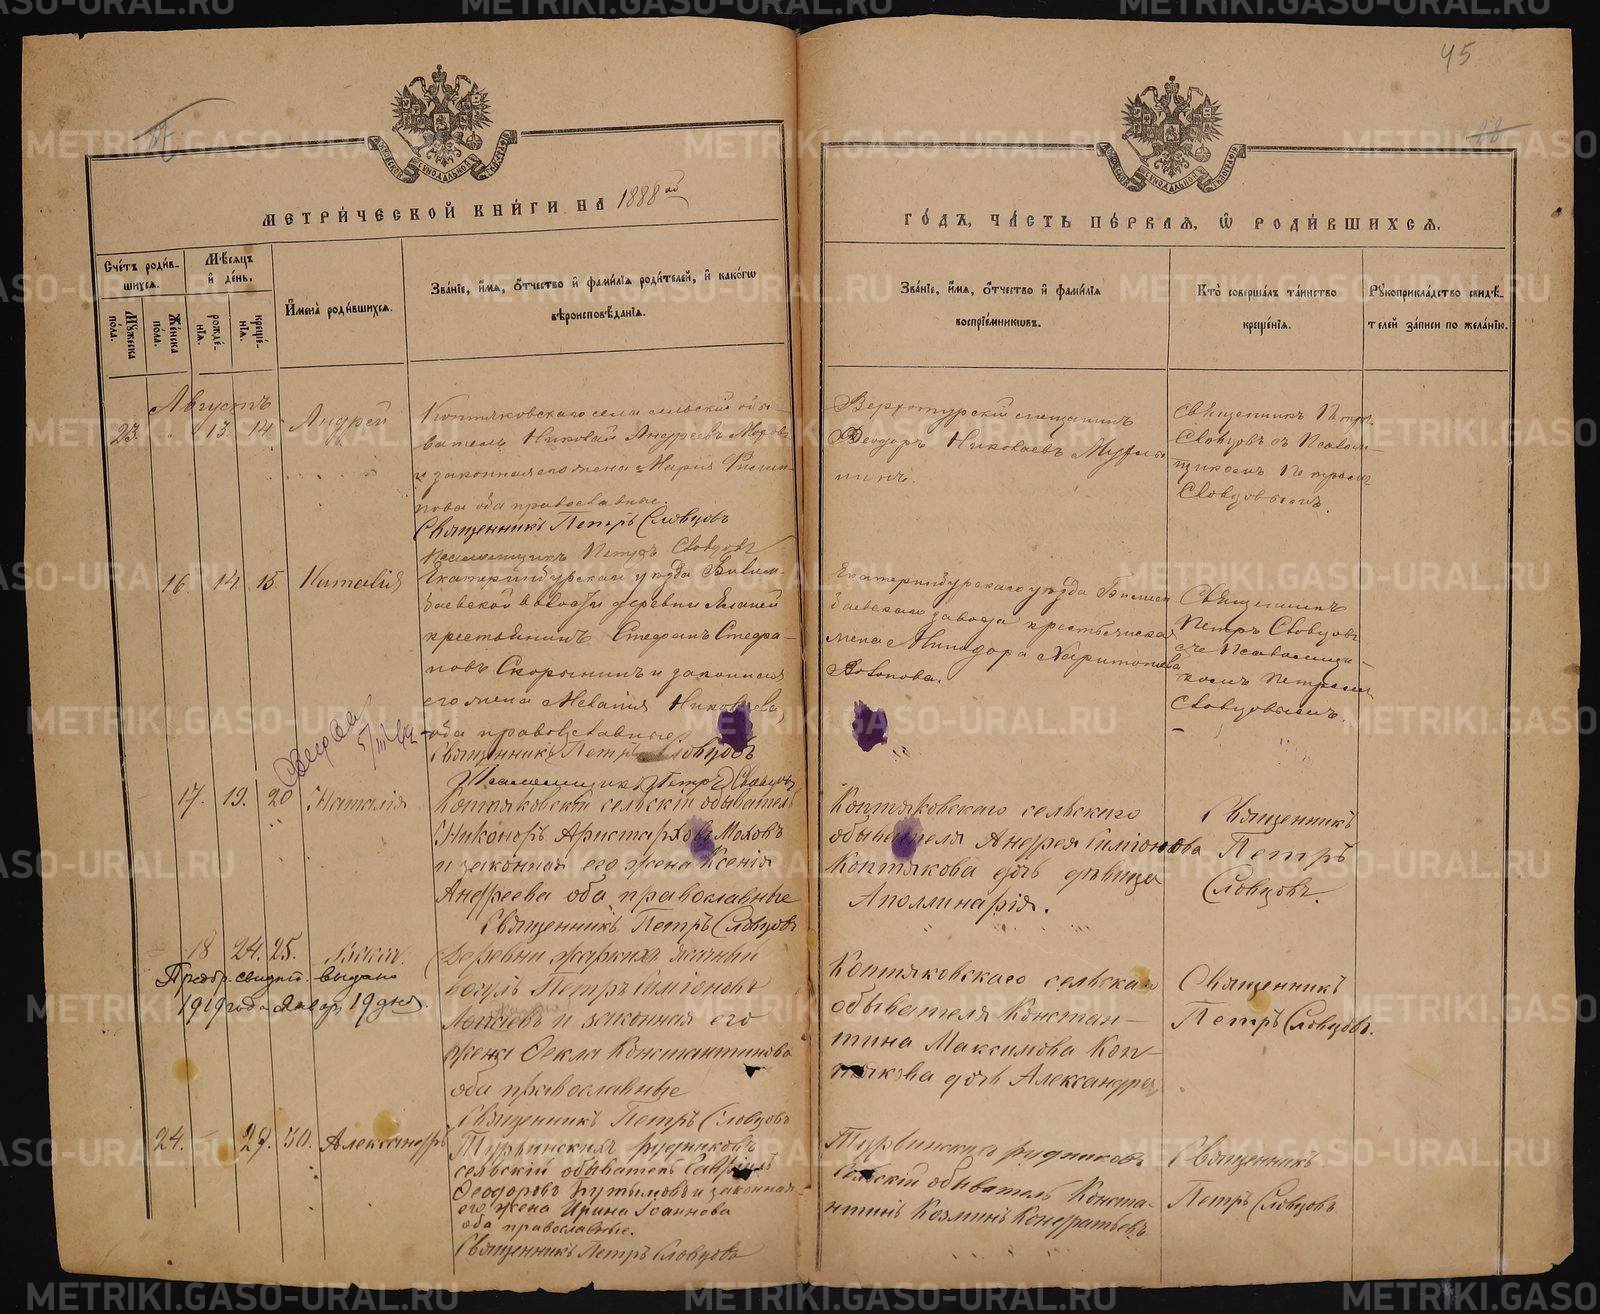 45
МЕТРИ́ЧЕСКОЙ КНИ́ГИ НА 1888ой
ГО́ДЪ, ЧА́СТЬ ПЕ́РВАЯ, Ѿ РОДИ́ВШИХСЯ.
Сче́тъ роди́в-
шихся.
Му́жеска по́ла.
Же́нска по́ла.
Мѣ́сяцъ
и де́нь.
рожде́-
нія.
креще́-
нія.
Имена̀ роди́вшихся.
Зва́ніе, и́мя, о́тчество и фами́лія роди́телей, и како́гѡ
вѣроисповѣ́данія.
Зва́ніе, и́мя, о́тчество и фами́лія
воспріе́мникѡвъ.
Кто̀ соверша́лъ та́инство
креще́нія.
Рукоприкла́дство свидѣ́-
телей за́писи по жела́нію.
Августъ
23. " 13. 14. Андрей
Коптяковскаго села сельскій обы-
ватель Николай Андреевъ
и законная его жена Марія Филип-
пова оба православные.
Священникъ Петръ Словцовъ
Псаломщикъ Петръ Словцовъ
Верхотурскій мещанинъ
Феодоръ Николаевъ
Священникъ Петръ
Словцовъ съ Псалом-
щикомъ Петромъ
Словцовымъ.
16. 14. 15. Наталія
Екатеринбургскаго уѣзда Билим-
баевской волости деревни
крестьянинъ Стефанъ Стефа-
новъ Скорынинъ и законная
его жена Меланія Николаева,
оба православные.
Священникъ Петръ Словцовъ
Псаломщикъ Петръ Словцовъ
Екатеринбургскаго уѣзда Билим
баевскаго завода крестьянская
жена Харитонова
Священникъ
Петръ Словцовъ
съ Псаломщи-
комъ Петромъ
Словцовымъ.
17. 19. 20 Наталія
Коптяковскій сельскій обыватель
Никоноръ Аристарховъ Моховъ
и законная его жена Ксенія
Андреева оба православные
Священникъ Петръ Словцовъ
Коптяковскаго сельскаго
обывателя Андрея Симіонова
Коптякова дочь дѣвица
Аполлинарія.
Священникъ
Петръ
Словцовъ.
18 24. 25.
выдано
1919 года Январ 19 дня.
Деревни
Петръ Симіоновъ
Лопаевъ и законная его
жена Фекла Константинова
оба православные
Священникъ Петръ Словцовъ
Коптяковскаго сельскаго
обывателя Констан-
тина Максимова Коп-
тякова дочь Александра
Священникъ
Петръ Словцовъ.
24. – 29. 30. Александръ
Турьинскихъ рудниковъ
сельскій обыватель Гавріилъ
Феодоровъ и законная
его жена Ирина Іоаннова
оба православные.
Священникъ Петръ Словцовъ
Турьинскихъ рудниковъ
сельскій обыватель Конста-
нтинъ Козминъ Кондратьевъ
Священникъ
Петръ Словцовъ
METRIKI.GASO-URAL.RU